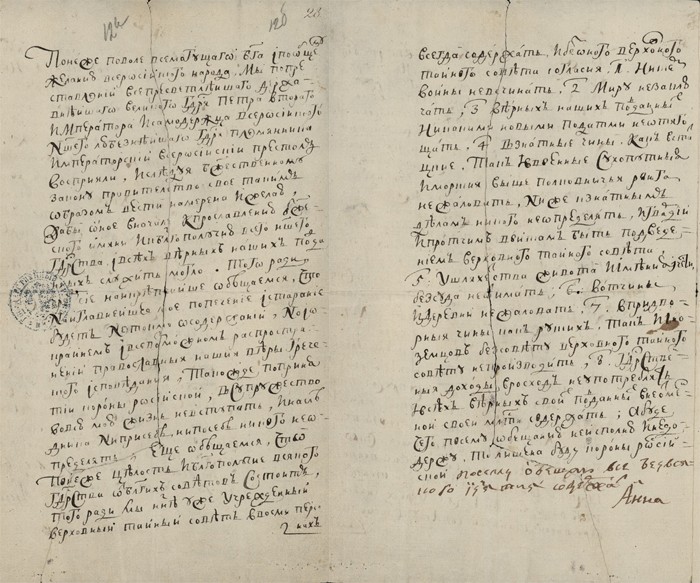 12и
12б
23
Понеже поволе всемогущаго бга іпообще
желанию всеросиіского народа, мы попре
ставлениі всепресветлѣишаго держа
внѣишаго великого гдря Петра второго
императора исамодержца всеросиіского
ншего любезнѣишаго гдря племянника
императорскиі всеросиіскиі престолъ
восприяли, іслѣдуя божественному
закону правителство свое такимъ
образомъ вести намерена ижелаю,
дабы оное вначале кпрославлению боже
ского имяни икблагополучию всего ншего
гдрства, івсѣхъ вѣрныхъ нашихъ подда
нныхъ служить могло. Того ради,
чрезъ сие наикрѣпчаише обещаемся, что
наиглавнеишее мое попечение істарание
будетъ неtокмо осодержаниі, но іокра
инемъ івсевозможномъ распростра
нениі православныя нашия вѣры грече
ского ісповѣдания, такожде, поприня
тиі короны росиіскои, всупружество
вовсю мою жизнь невступать, инаслѣ
дника, ниприсебѣ, нипосебѣ никого неопределять,
Еще обещаемся, что
понеже цѣлость иблагополучие всякого
гдрства отблагихъ советовъ состоитъ,
того ради мы ннѣ уже учрежденныи
верховныи таиныи совѣтъ восьми персо
нахъ
всегда содержать, ибезоного верховного
таиного совѣта согласия, 1, нискемъ
воины невсчинать. 2, миру незаклю
чать, 3, вѣрныхъ нашихъ подданныхъ
никакими новыми податми неотягощать.
4, взнатные чины, какъ вста
цкие, такъ ивоенные, сухопутные
иморские, выше полковничья ранга
нежаловать, ниже кзнатнымъ
дѣламъ никого неопределять, игвардиі
ипротчимъ воискамъ быть подведе
ниемъ верховного таиного совѣта,
5, ушляхетства живота иимения ичести
безсуда неотимать, 6, вотчины,
идеревни нежаловать. 7, впридво
рные чины, какъ рускихъ, такъ ино
земцовъ безсовѣту верховного таиного
совѣта непроизводить, 8, гдрстве
нныя доходы врасходъ неупотреблять
ивсѣхъ вѣрныхъ своихъ подданныхъ внеотме
ннои своеи млсти содержать, абуде
чего посему обещанию неисполню инедо
держу, то лишена буду короны росиі
скои, посему обещаюсь все безвся
кого изятия содержать
Анна